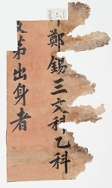 鄭錫三文科乙科
弟出身者